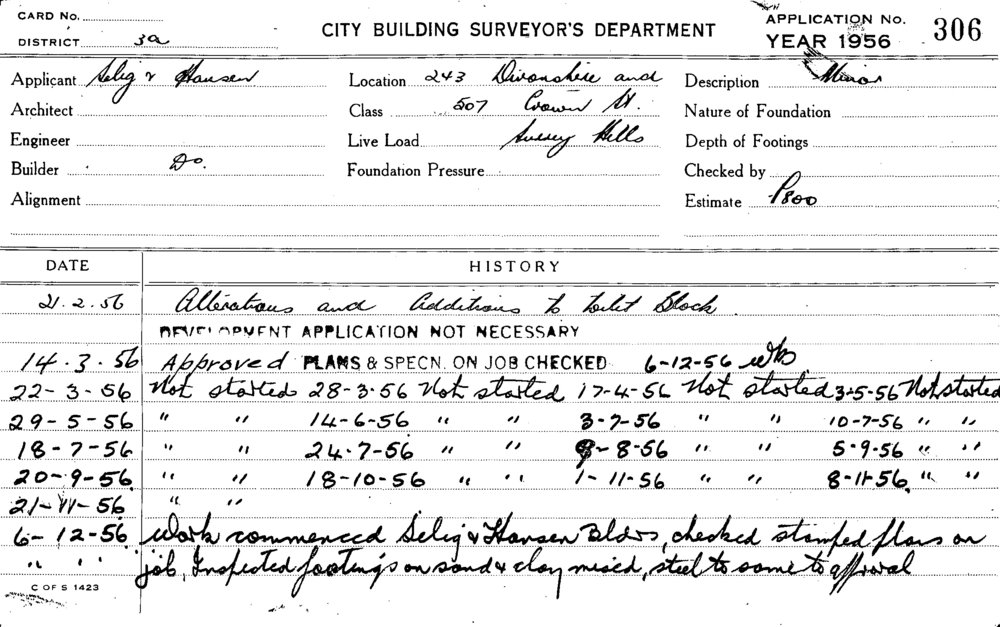 CARD No.
DISTRICT 3a
CITY BUILDING SURVEYOR'S DEPARTMENT
APPLICATION No. 306
YEAR 1956
Applicant Selig & Hansen
Location 243 Divonshire and
Description Minor
Architect
Class 507 Crown St.
Nature of Foundation
Engineer
Live Load Surrey Hills
Depth of Footings
Builder Do.
Foundation Pressure
Checked by
Alignment
Estimate P800
DATE HISTORY
21.2.56 Alterations and additions to toilet Block
DEVELOPMENT APPLICATION NOT NECESSARY
14.3.56 Approved PLANS & SPECN. ON JOB CHECKED 6-12-56
22-3-56 Not started 28-3-56 Not started 17-4-56 Not started 3-5-56 Not started
29-5-56 " " 14-6-56 " " 3-7-56 " " 10-7-56 " "
18-7-56 " " 24-7-56 " " 8-8-56 " " 5-9-56 " "
20-9-56 " " 18-10-56 " " 1-11-56 " " 8-11-56 " "
21-11-56 " "
6-12-56 Work commenced Selig & Hansen Bldrs, checked stamped plans on
" " job, Inspected footings on sand & clay mixed, steel to same to approval
C OF S 1423